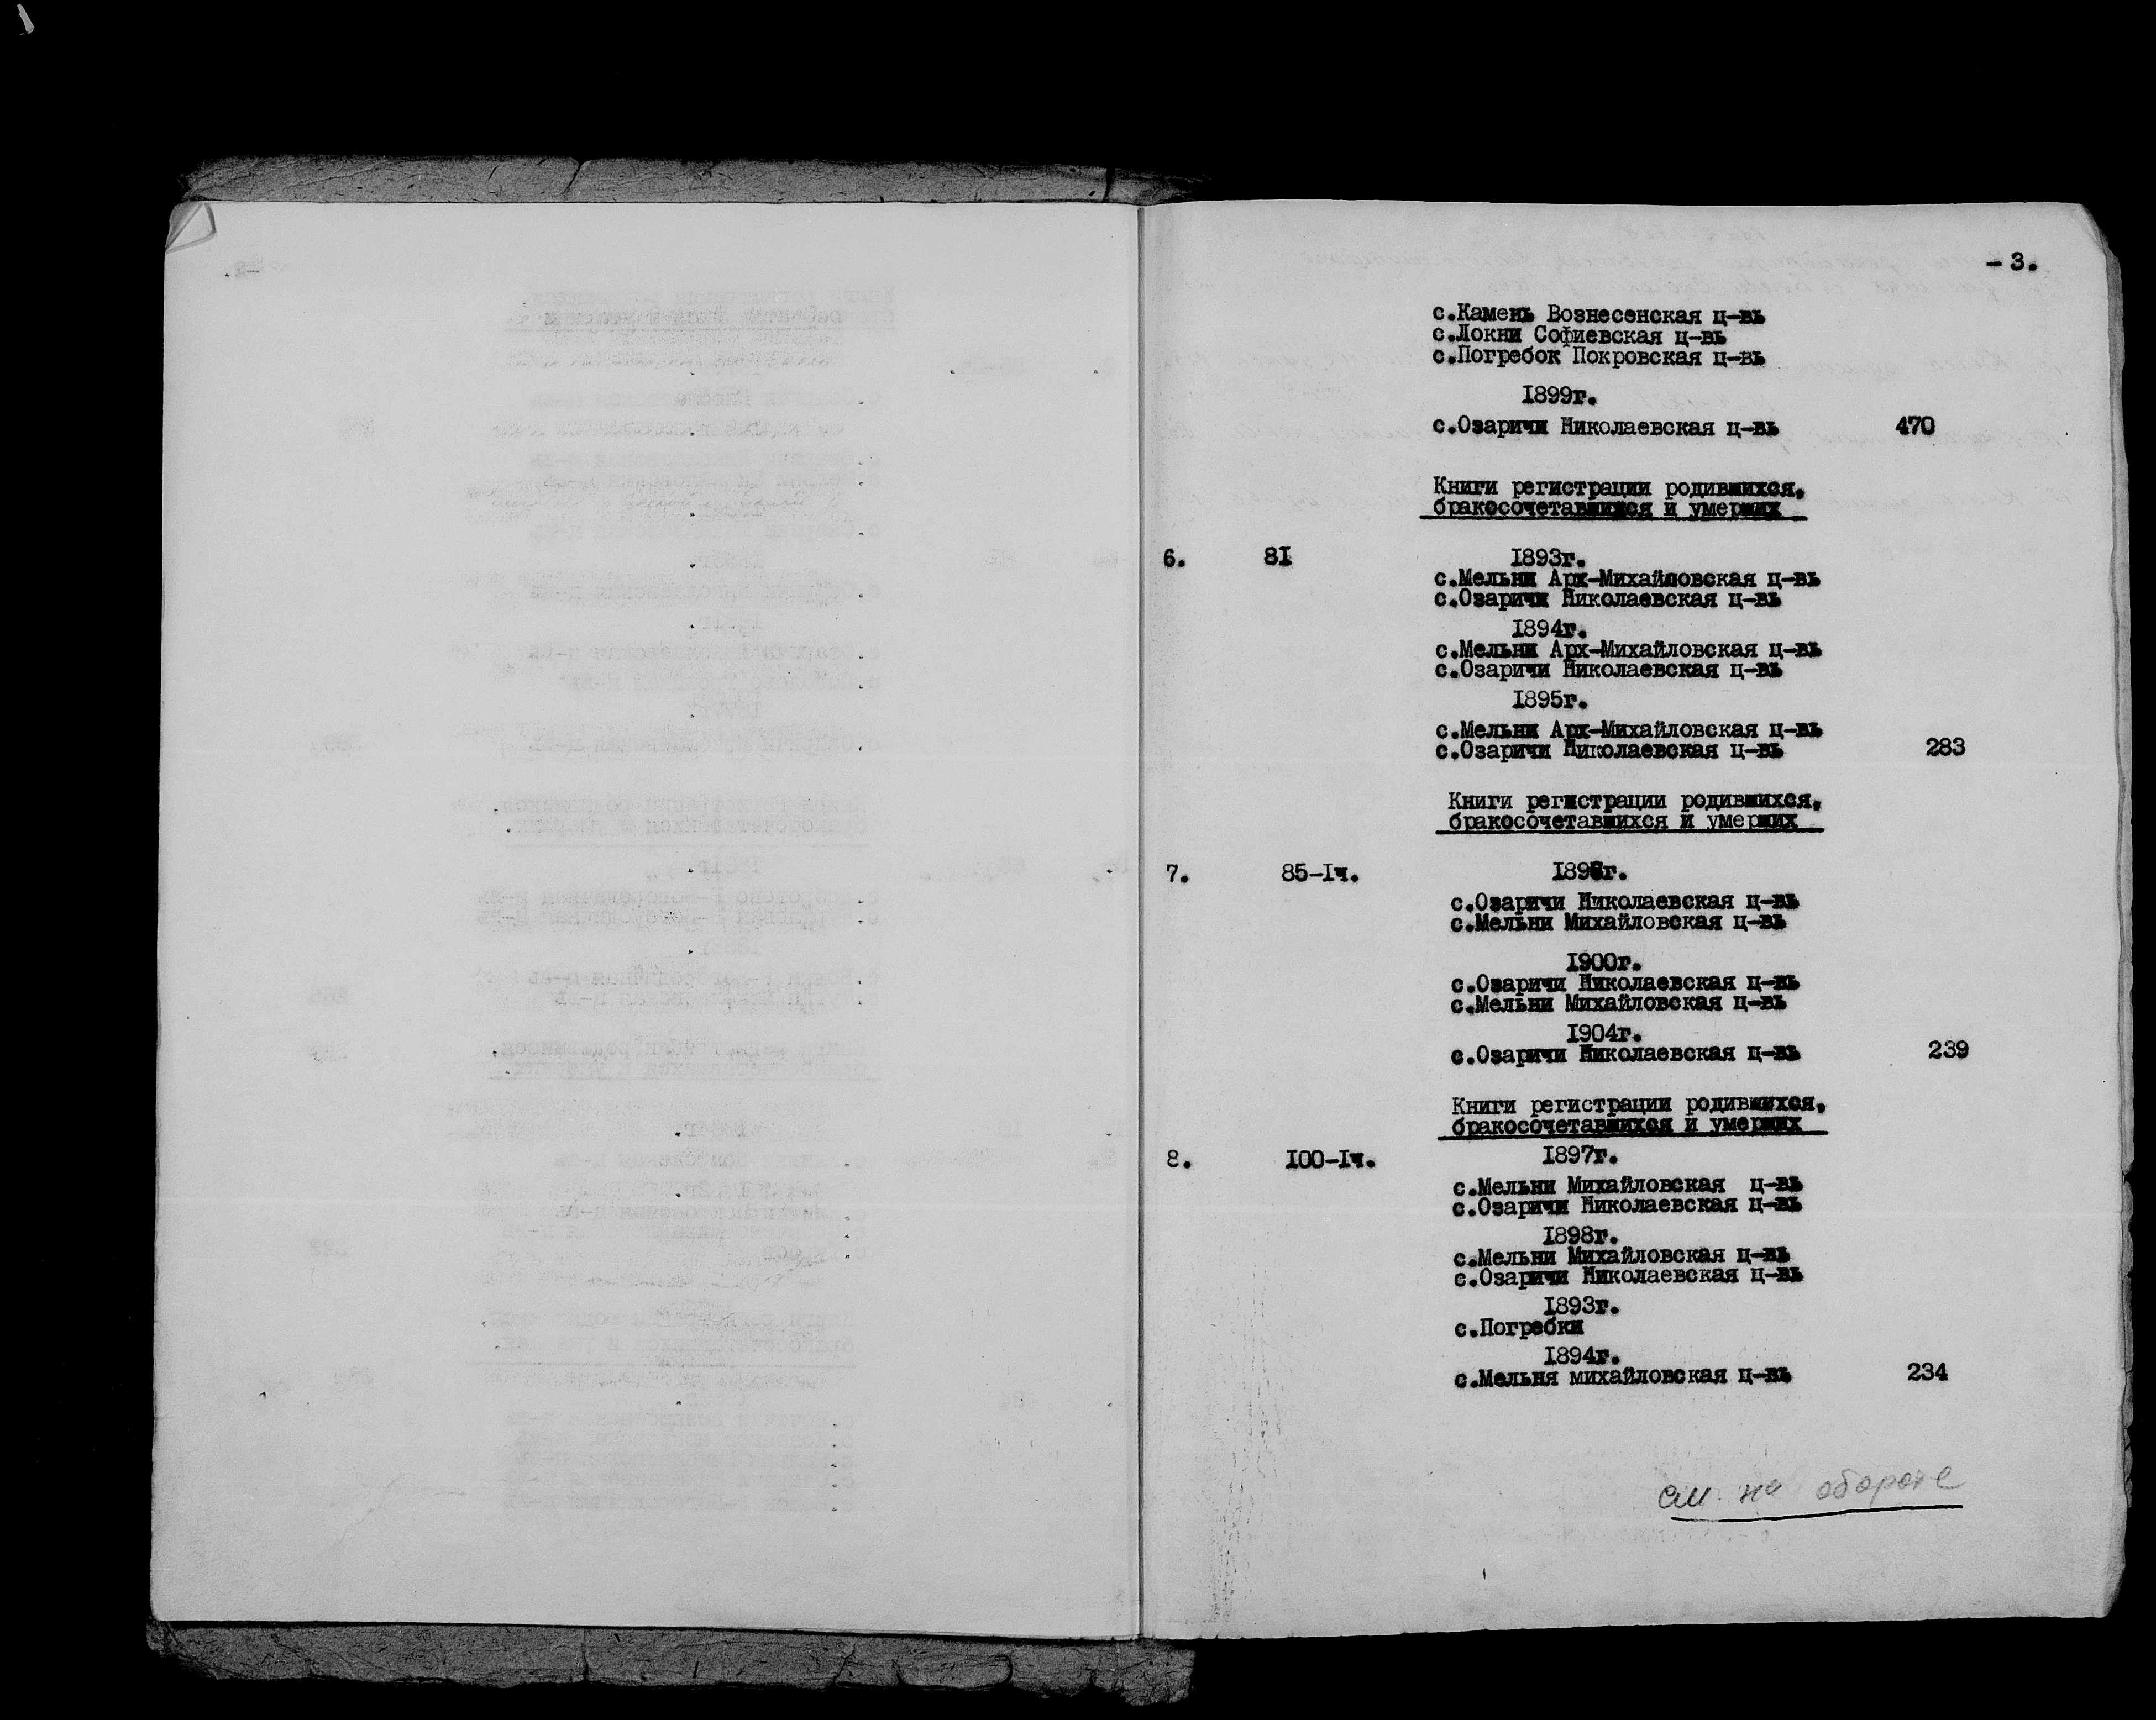 - 3.
с.Камень Вознесенская ц-вь
с.Локни Софиевская ц-вь
с.Погребок Покровская ц-вь
1899г.
с.Озаричи Николаевская ц-вь 470
Книги регистрации родившихся,
бракосочетавшихся и умерших
6. 81 1893г.
с.Мельни Арх-Михайловская ц-вь
с.Озаричи Николаевская ц-вь
1894г.
с.Мельни Арх-Михайловская ц-вь
с.Озаричи Николаевская ц-вь
1895г.
с.Мельни Арх-Михайловская ц-вь
с.Озаричи Николаевская ц-вь 283
Книги регистрации родившихся,
бракосочетавшихся и умерших
7. 85-1ч.
с.Озаричи Николаевская ц-вь
с.Мельни Михайловская ц-вь
1900г.
с.Озаричи Николаевская ц-вь
с.Мельни Михайловская ц-вь
1904г.
с.Озаричи Николаевская ц-вь 239
Книги регистрации родившихся,
бракосочетавшихся и умерших
8. 100-1ч. 1897г.
с.Мельни Михайловская ц-вь
с.Озаричи Николаевская ц-вь
1898г.
с.Мельни Михайловская ц-вь
с.Озаричи Николаевская ц-вь
1893г.
с.Погребки
1894г.
с.Мельня михайловская ц-вь 234
см. на обороте